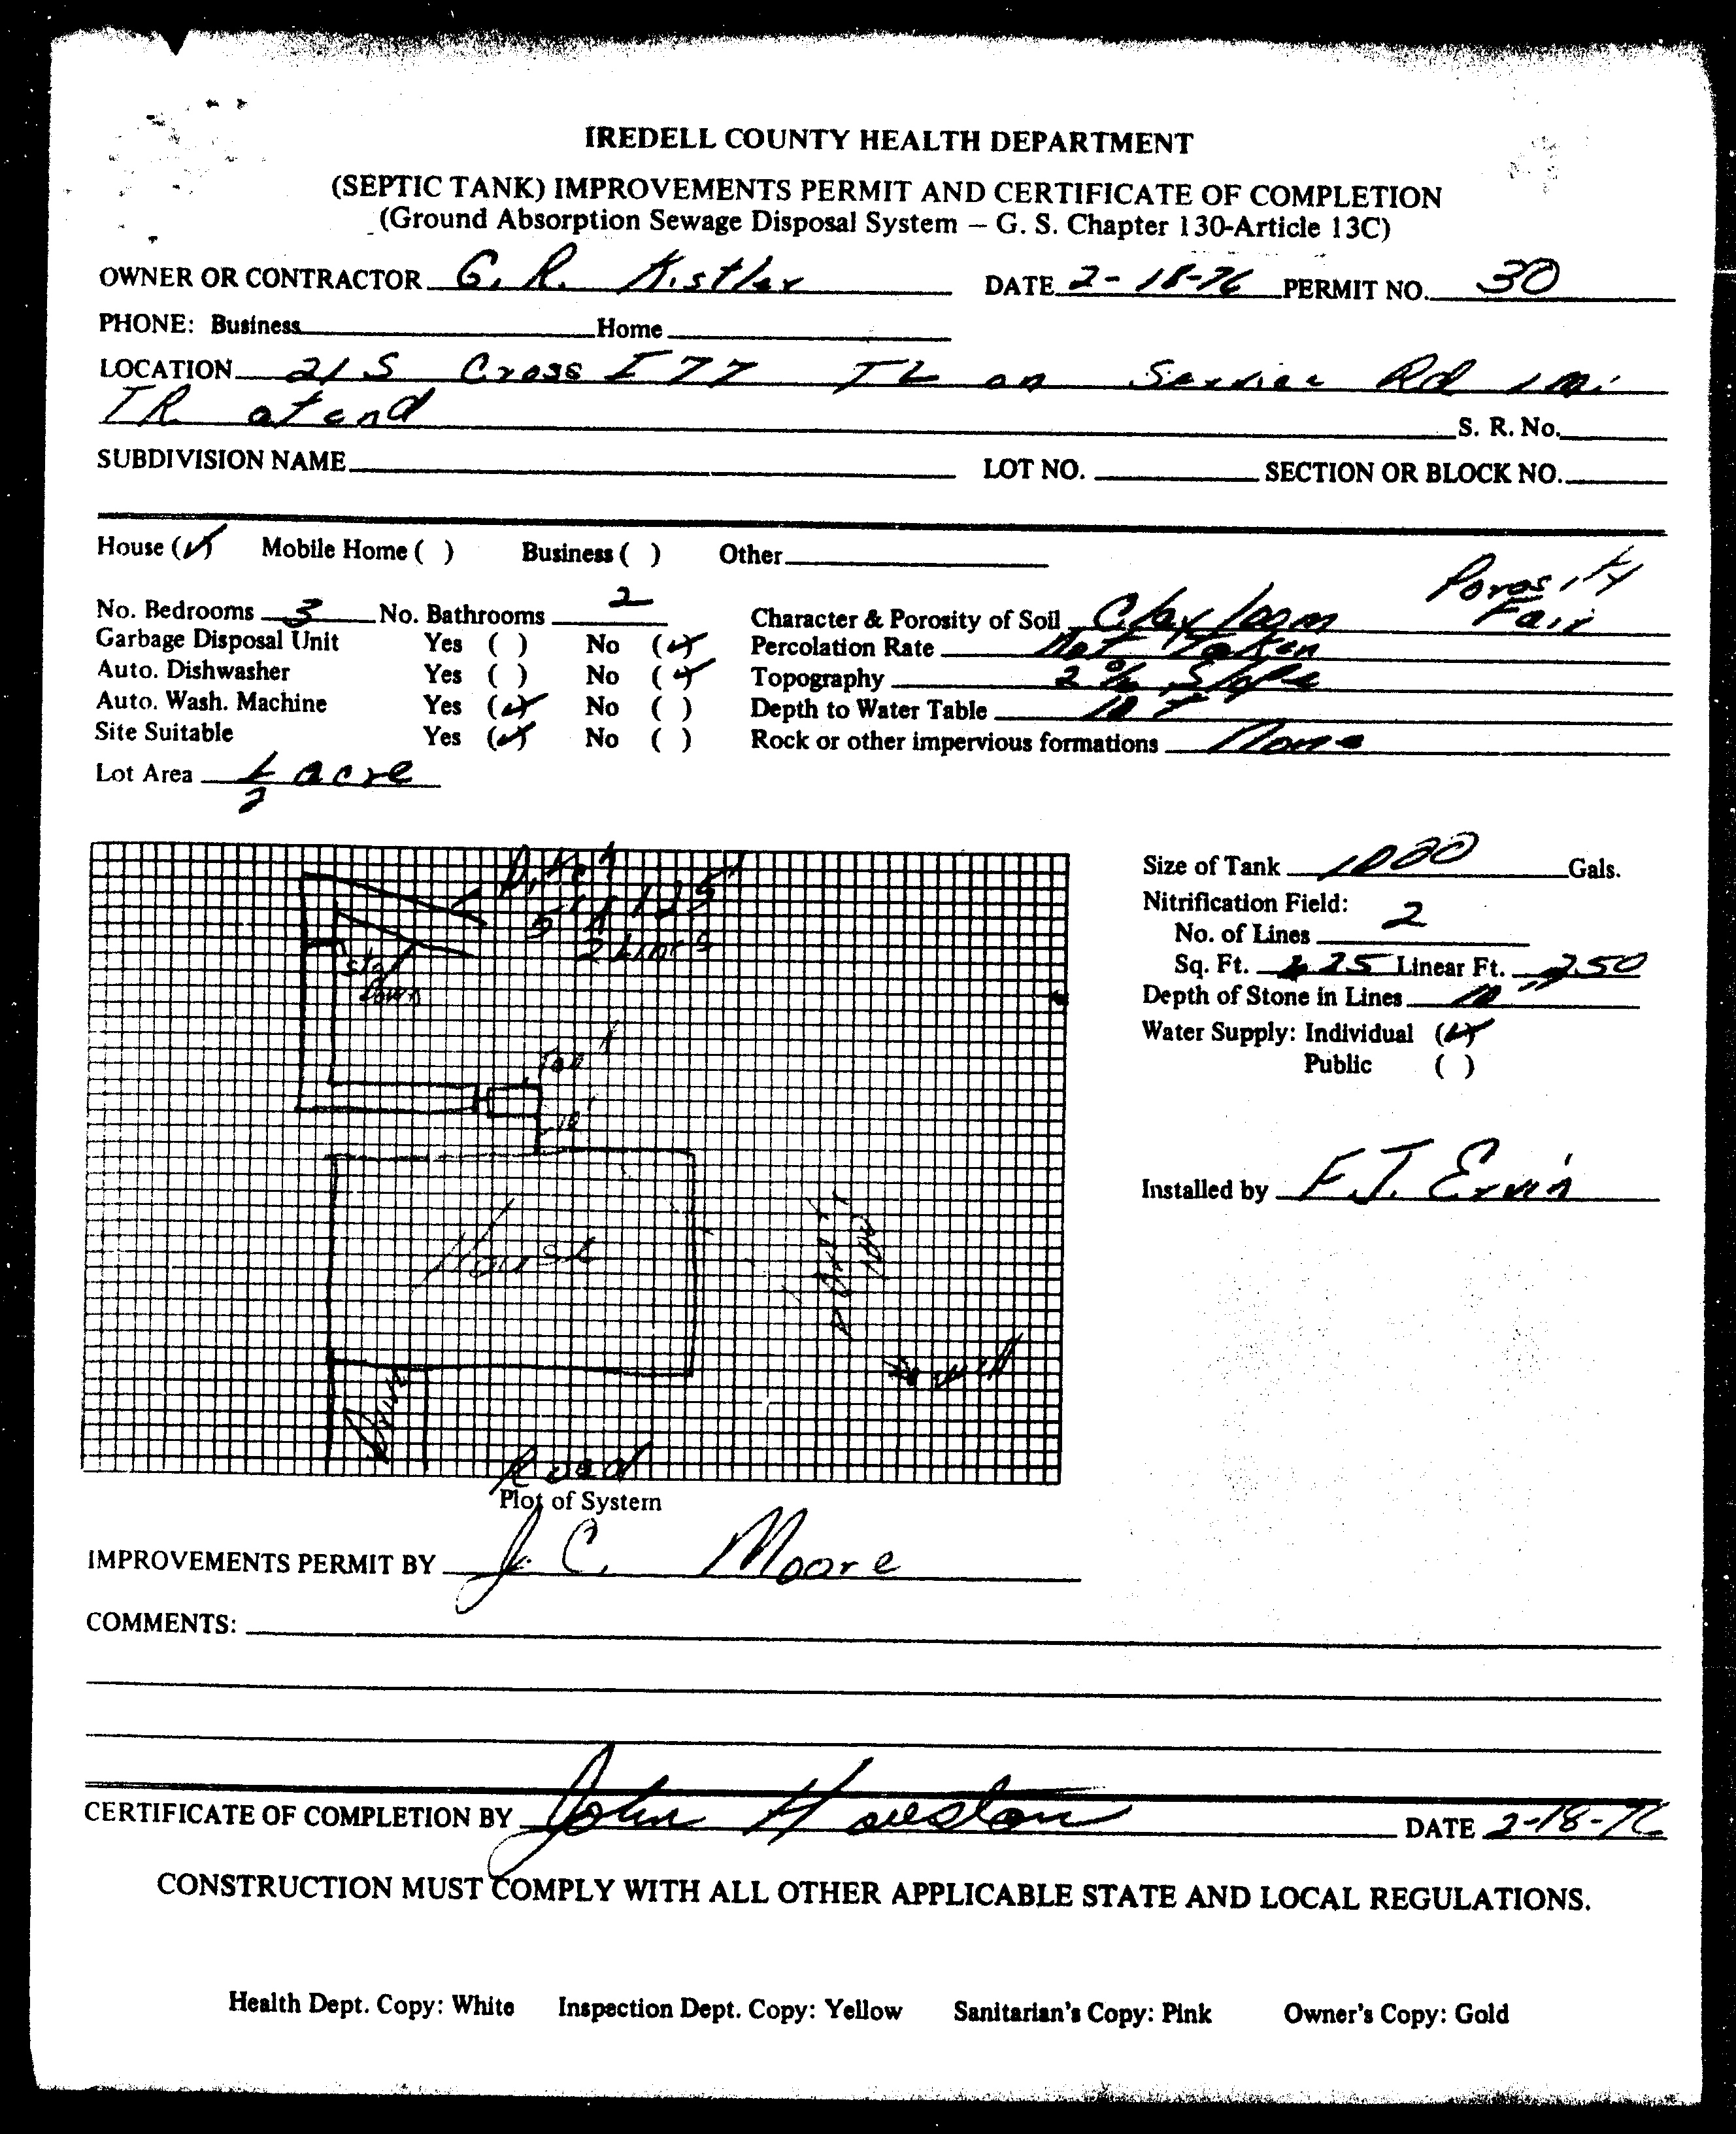 IREDELL COUNTY HEALTH DEPARTMENT
(SEPTIC TANK) IMPROVEMENTS PERMIT AND CERTIFICATE OF COMPLETION
(Ground Absorption Sewage Disposal System – G. S. Chapter 130-Article 13C)
OWNER OR CONTRACTOR G. R. Kistler DATE 2-18-76 PERMIT NO. 30
PHONE: Business Home
LOCATION 21 S Cross I 77 TL on Service Rd 1 mi
TR at end S. R. No.
SUBDIVISION NAME LOT NO. SECTION OR BLOCK NO.
House (✓) Mobile Home ( ) Business ( ) Other
No. Bedrooms 3 No. Bathrooms 2 Character & Porosity of Soil Clay loam Porosity Fair
Garbage Disposal Unit Yes ( ) No (✓) Percolation Rate Not Taken
Auto. Dishwasher Yes ( ) No (✓) Topography 2% Slope
Auto. Wash. Machine Yes (✓) No ( ) Depth to Water Table
Site Suitable Yes (✓) No ( ) Rock or other impervious formations None
Lot Area 1/2 acre
Size of Tank 1000 Gals.
Nitrification Field:
No. of Lines 2
Sq. Ft. Linear Ft. 250
Depth of Stone in Lines 10"
Water Supply: Individual (✓)
Public ( )
Installed by F.J. Ervin
125'
2 Lines
Down
10'
House
100'
well
Drive
Road
Plot of System
IMPROVEMENTS PERMIT BY J. C. Moore
COMMENTS:
CERTIFICATE OF COMPLETION BY John Houston DATE 2-18-76
CONSTRUCTION MUST COMPLY WITH ALL OTHER APPLICABLE STATE AND LOCAL REGULATIONS.
Health Dept. Copy: White Inspection Dept. Copy: Yellow Sanitarian's Copy: Pink Owner's Copy: Gold